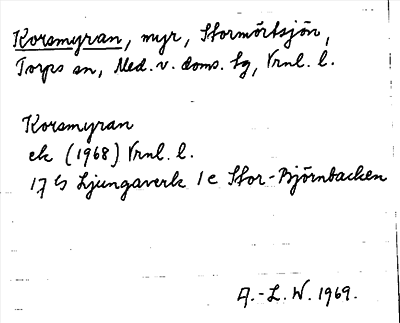 Korsmyran, myr, Stormörtsjön,
Torps sn, Med. v. doms. tg, Vrnl. l.
Korsmyran
ek (1968) Vrnl. l.
17 G Ljungaverk 1 e Stor-Björnbacken
A.-L. W. 1969.